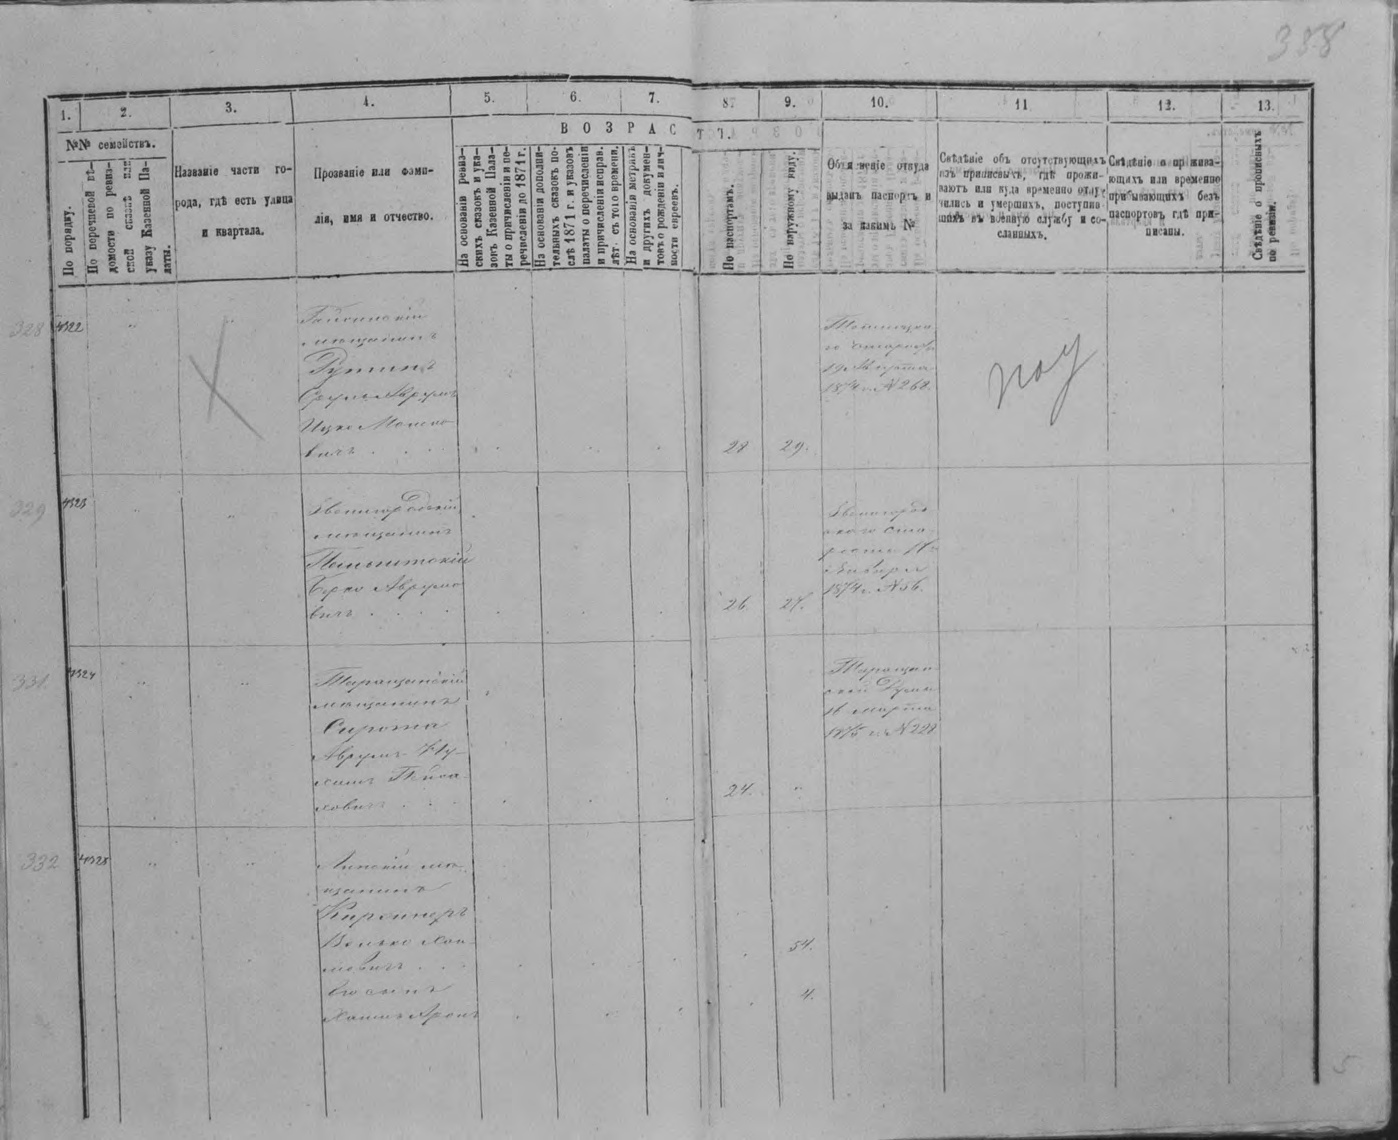 388
1.
2.
3.
4.
5.
6.
7.
8.
9.
10.
11
12.
13.
ВОЗРАСТ
№№ семействъ.
По порядку.
По перечневой вѣ-
домости по ревиз-
ской сказкѣ или
указу Казенной Па-
латы.
Названіе части го-
рода, гдѣ есть улица
и квартала.
Прозваніе или фами-
лія, имя и отчество.
На основаніи ревиз-
скихъ сказокъ и ука-
зовъ Казенной Пала-
ты о причисленіи и пе-
речисленіи до 1871 г.
На основаніи дополни-
тельныхъ сказокъ по-
слѣ 1871 г. и указовъ
палаты о перечисленіи
и причисленіи исправ.
лѣт. съ того времени.
На основаніи метрикъ
и другихъ докумен-
товъ о рожденіи и лич-
ности евреевъ.
По паспортамъ.
По наружному виду.
Объясненіе откуда
выданъ паспортъ и
за какимъ №
Свѣдѣніе объ отсутствующихъ
изъ приписныхъ, гдѣ прожи-
ваютъ или куда временно отлу-
чились и умершихъ, поступив-
шихъ въ военную службу и со-
сланныхъ.
Свѣдѣніе о прожива-
ющихъ или временно
пребывающихъ безъ
паспортовъ, гдѣ при-
писаны.
Свѣдѣніе о прописныхъ
по ревизіи.
328
4322
Гайсинскій
мещанинъ
Сруль Аврумъ
Ицко Мошко-
вичъ
28
29.
19 Марта
1874 г. № 268.
329
4323
Звенигородскій
мещанинъ
Берко Аврумо-
вичъ
26
27.
Звенигород-
скаго ста-
росты 17
Января
1874 г. № 56.
331
4324
Таращанскій
мещанинъ
Сирота
Аврумъ Ну-
химъ Пейса-
ховичъ
24.
Таращан-
ской Думы
16 марта
1875 г. № 228
332
4325
Липскій ме-
щанинъ
Волько Хаи-
мовичъ
54.
его сынъ
4.
Хаимъ Аронъ
5